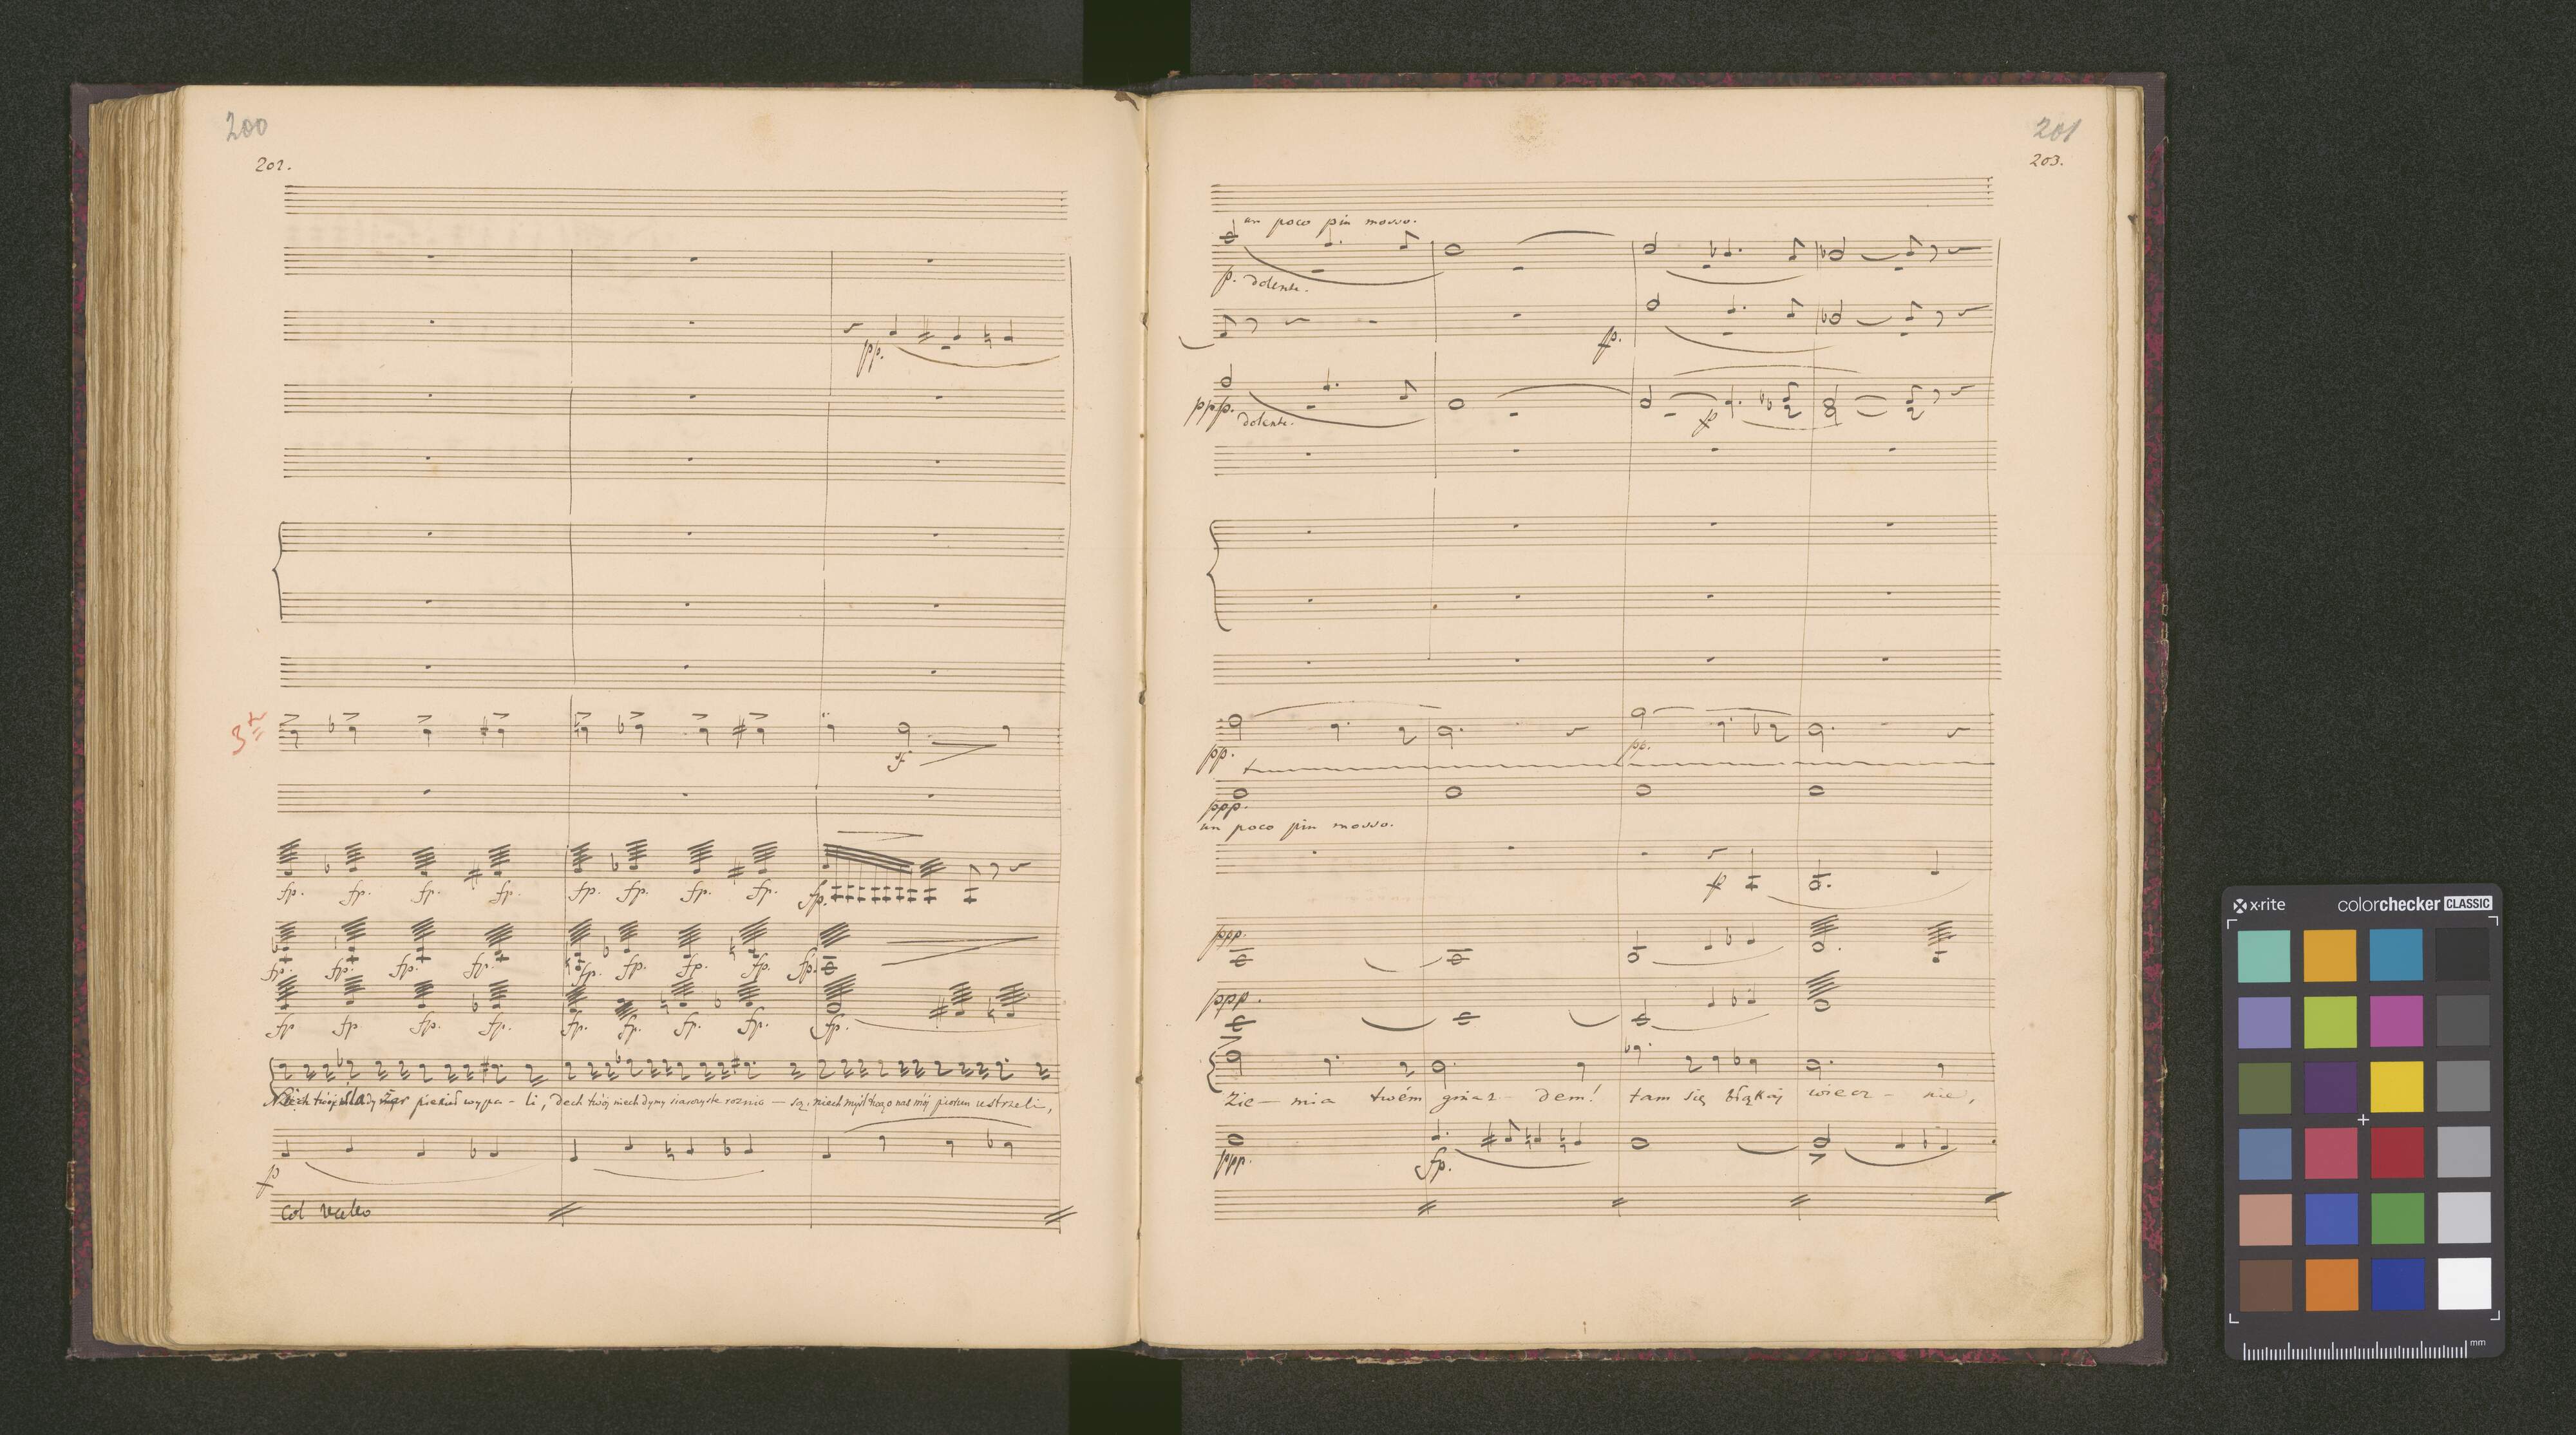 200
202.
pp.
3
f
fp. fp. fp. fp. fp. fp. fp. fp. fp.
fp. fp. fp. fp. fp. fp. fp. fp. fp.
fp fp. fp. fp. fp. fp. fp. fp. fp.
Niech twój żar piekieł wypa - li, dech twój niech dymy siarczyste roznio - są, niech myśl o nas mój piorun ustrzeli,
p
Col
201
203.
un poco più mosso.
p. dolente.
p.
ppp. dolente.
p
pp.
pp.
ppp.
un poco più mosso.
p
ppp.
ppp.
Zie - mia twém gniaz - dem! tam się błąkaj wiecz - nie,
ppp. fp.
x-rite colorchecker CLASSIC
mm